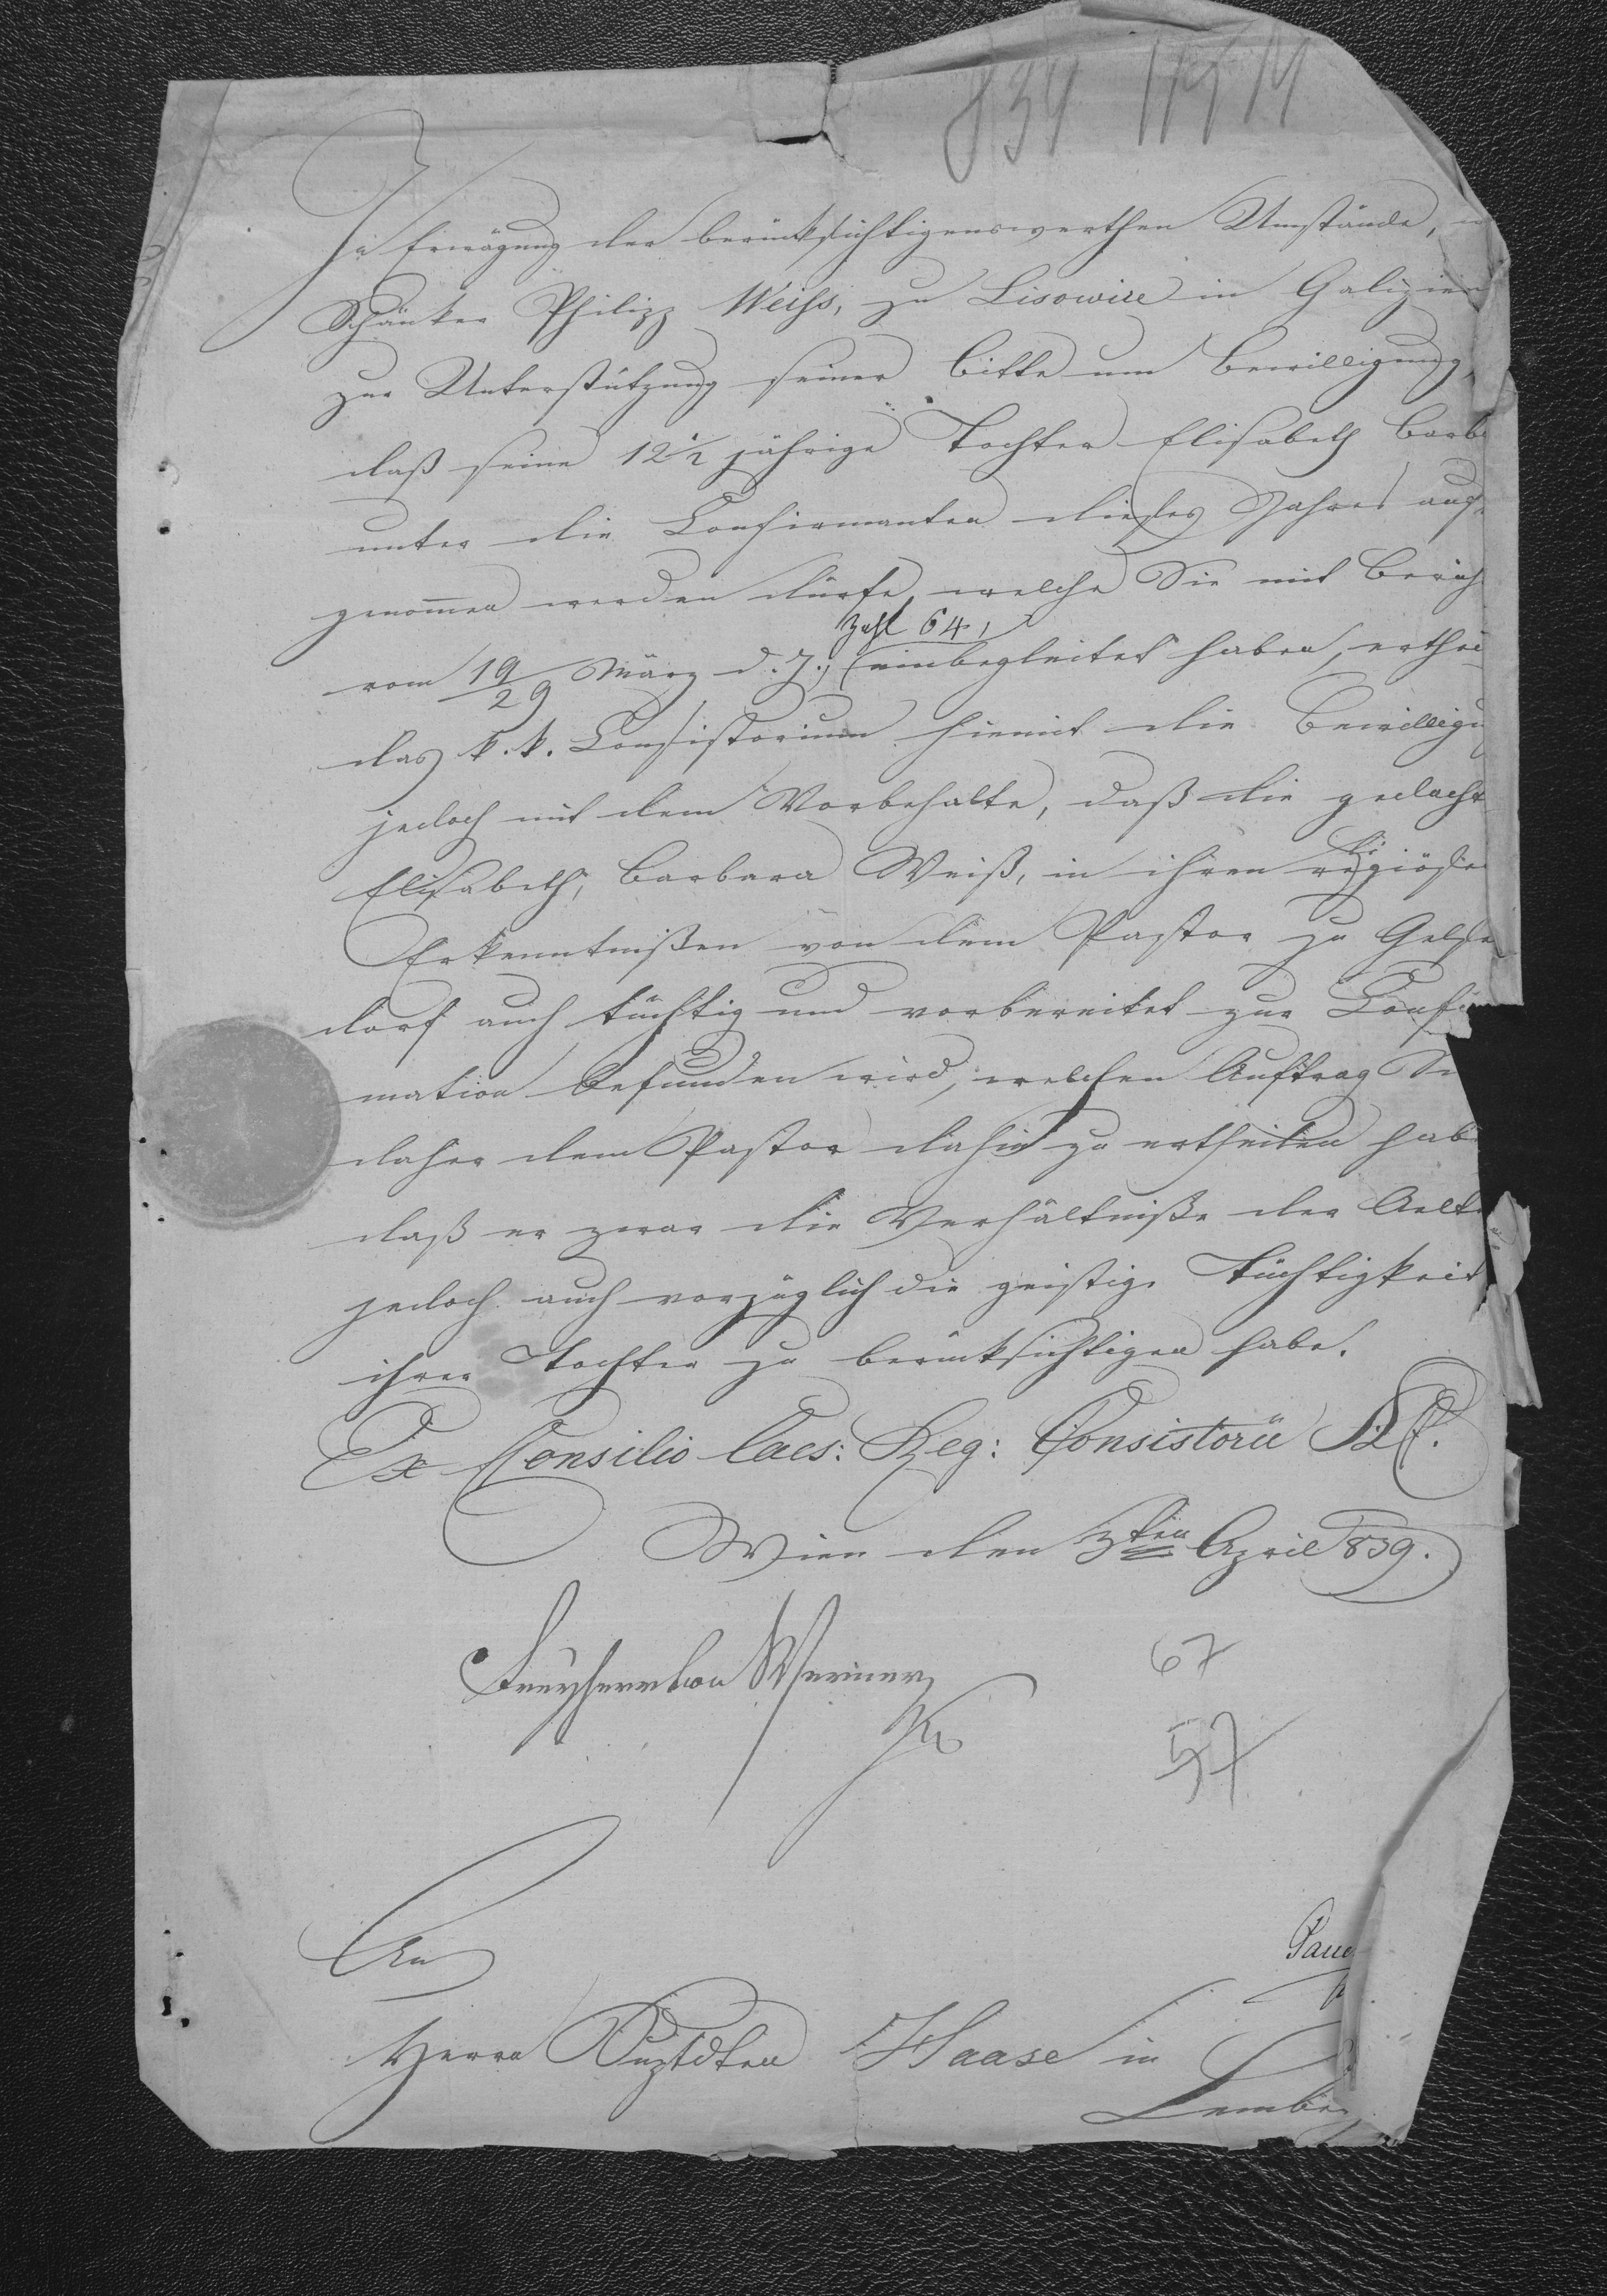 834
In Erwägung der berücksichtigenswerthen Umstände,
Schänker Philipp Weiss, zu Lisowice in Galizien
zur Unterstützung seiner Bitte um Bewilligung,
daß seine 12 1/2 jährige Tochter Elisabeth Barb
unter die Confirmanten dieses Jahres auf-
genom̄en werden dürfe, welche Sie mit Berich
Zahl 64,
vom 19/29 März d. J., einbegleitet haben, erthei
das k. k. Consistorium hiemit die Bewilligu
jedoch mit dem Vorbehalte, daß die gedacht
Elisabeth, Barbara Weiß, in ihren religiösen
Erkenntnißen von dem Pastor zu Gelsen
dorf auch tüchtig und vorbereitet zur Confir
mation befunden wird, welchen Auftrag Sie
daher dem Pastor dahin zu ertheilen hab
daß er zwar die Verhältniße der Aelte
jedoch auch vorzüglich die geistige Tüchtigkeit
ihrer Tochter zu berücksichtigen habe.
Ex Consilio Caes: Reg: Consistorii A. C.
Wien den 3ten April 839.
Freyherr von Werner
67
57
An
Herrn Suptdten Haase in
Lember